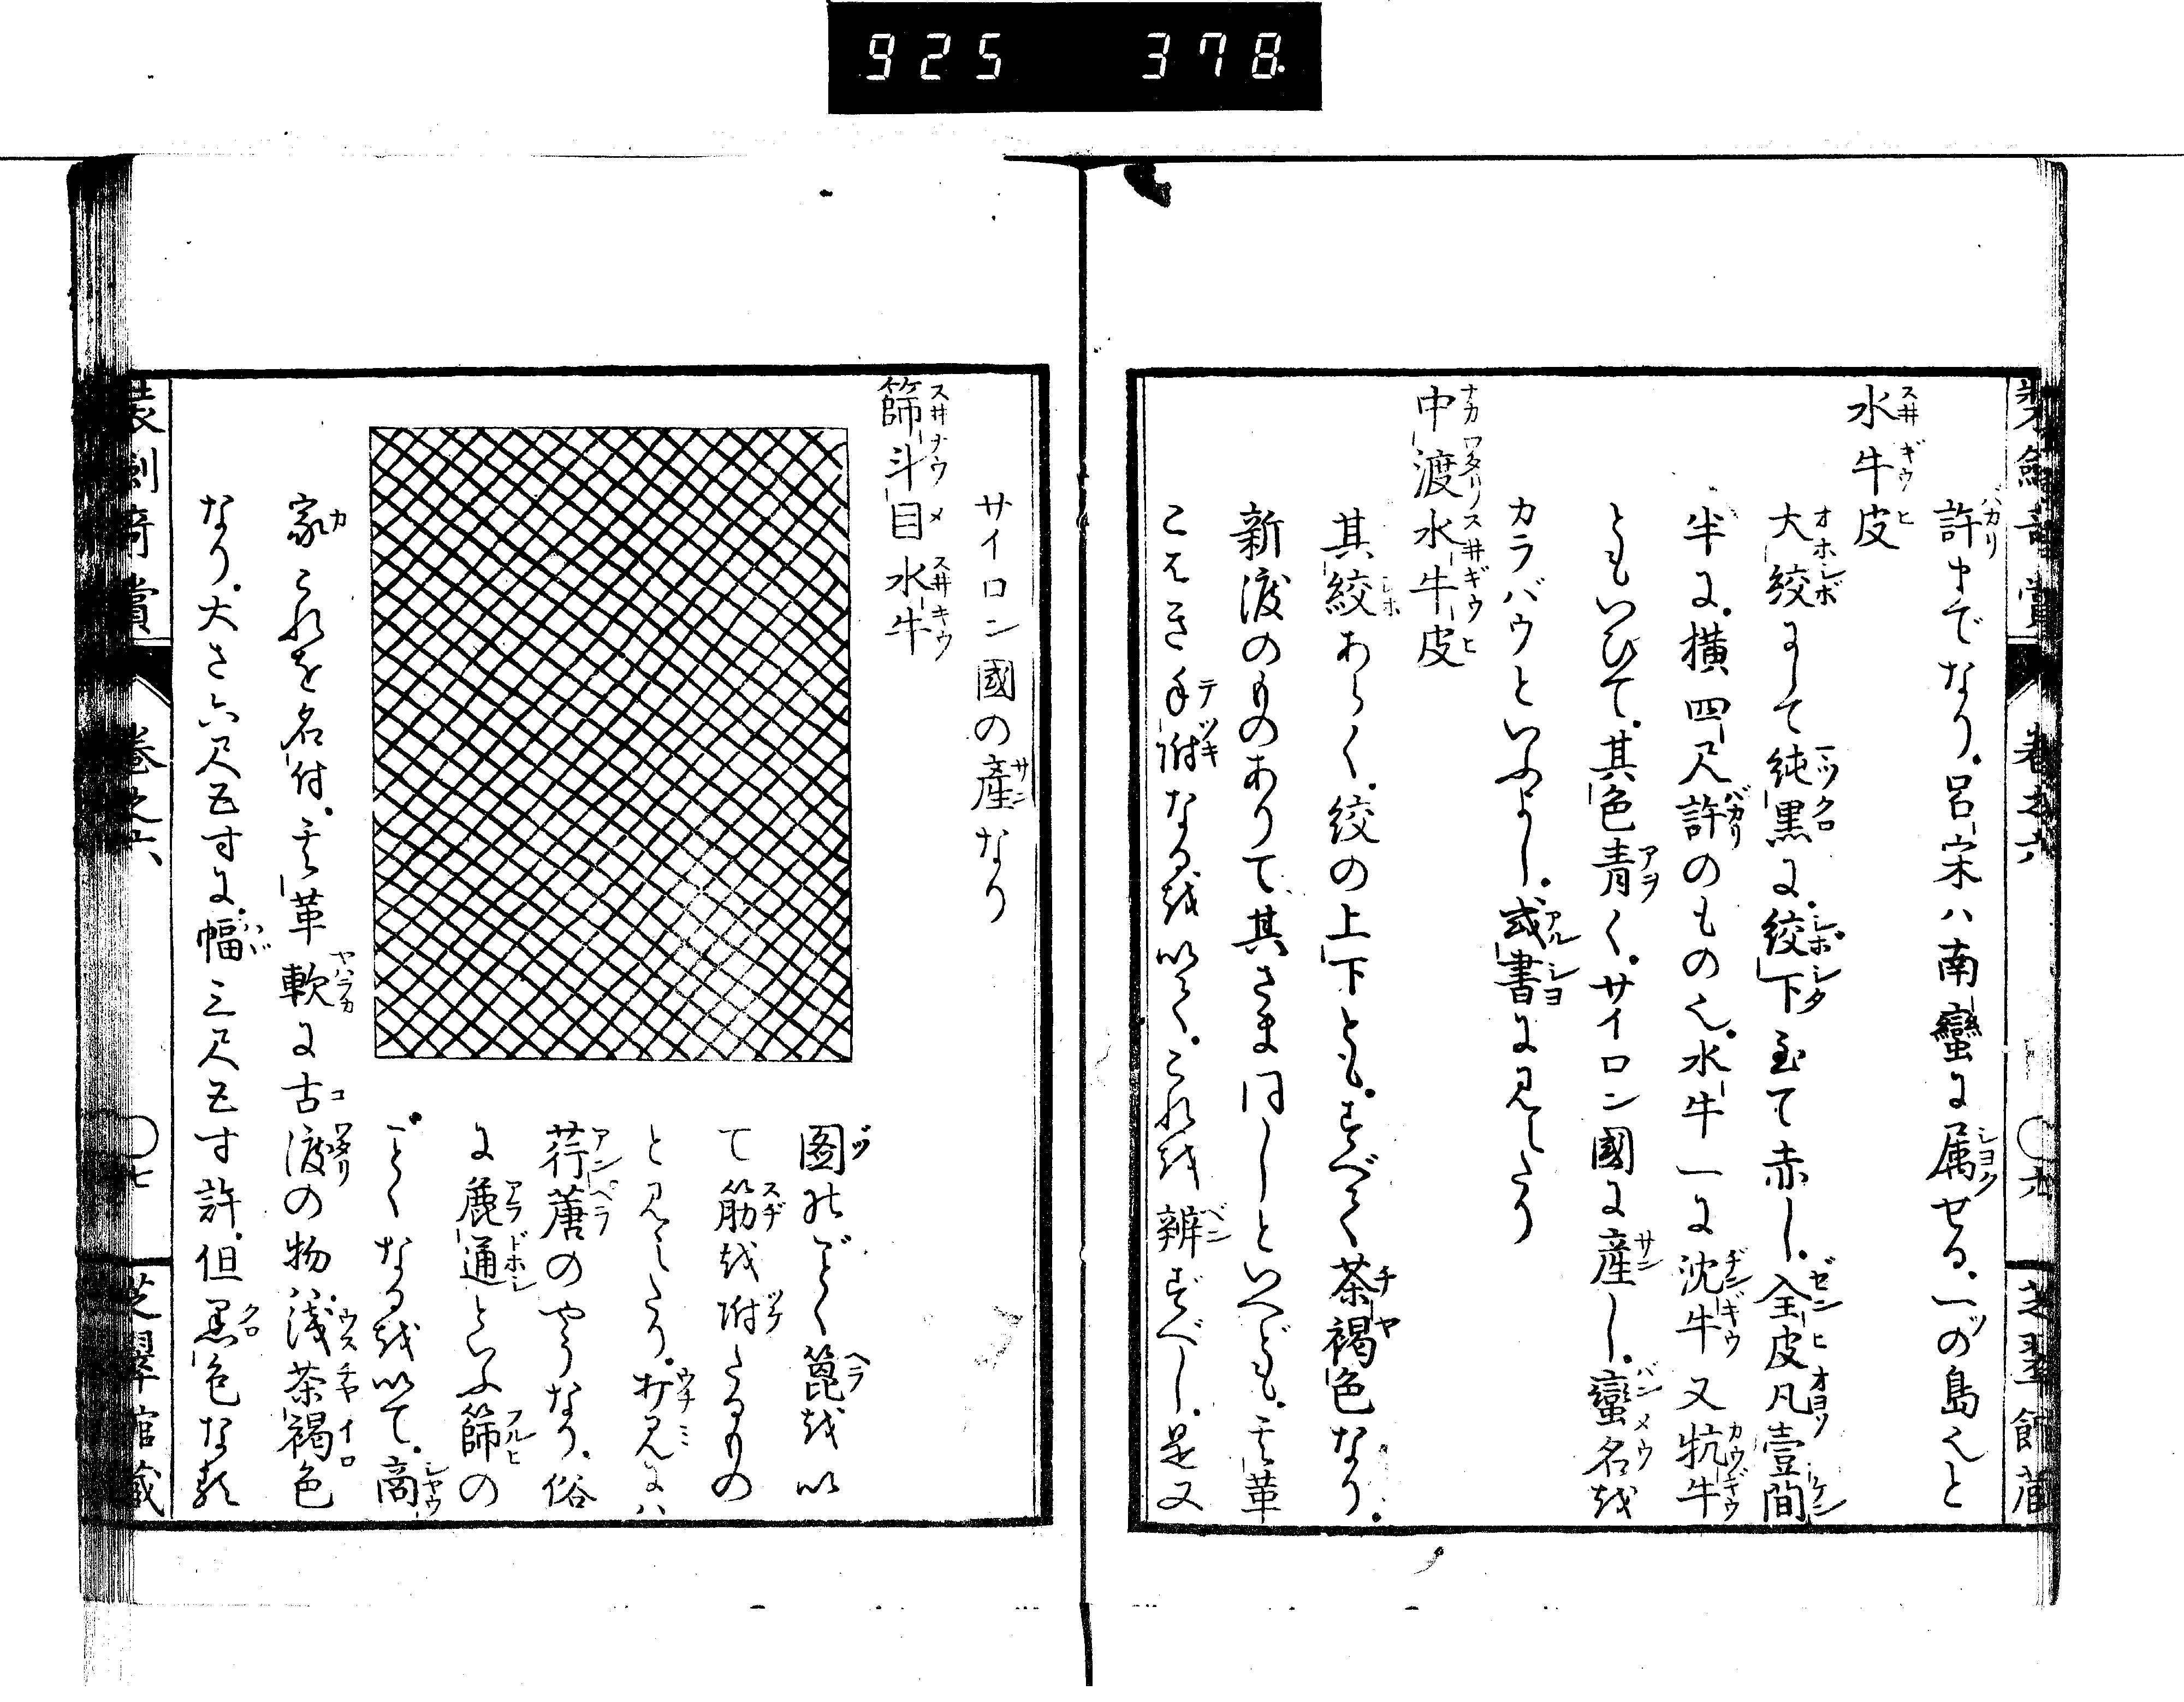 925 378
巻之六
許までなり。呂宋ハ南蠻に属せる、一ツの島也と
水牛皮
大絞にして純黒に、絞下至て赤し。全皮凡壹間
半に、横四尺許のもの也。水牛一に沈牛又牨牛
ともいひて、其色青く、サイロン國に産し、蠻名を
カラバウといふよし。或書に見へたり
中渡水牛皮
其絞あらく、絞の上下とも、すべて茶褐色なり。
新渡のものありて、其さま同しといへども、其革
こはき手附なるを以て、これを辨ずべし。是又
サイロン國の産なり
篩斗目水牛
圖のごとく篦を以
て筋を附たるもの
と見へたり。打見には
荇蓎のやうなり。俗
に麁通といふ篩の
ごとくなるを以て、商
家これを名付、其革軟に古渡の物ハ淺茶褐色
なり。大さ六尺五寸に、幅三尺五寸許、但黒色なる
装劍奇賞
巻之六
〇七
芝翠館藏